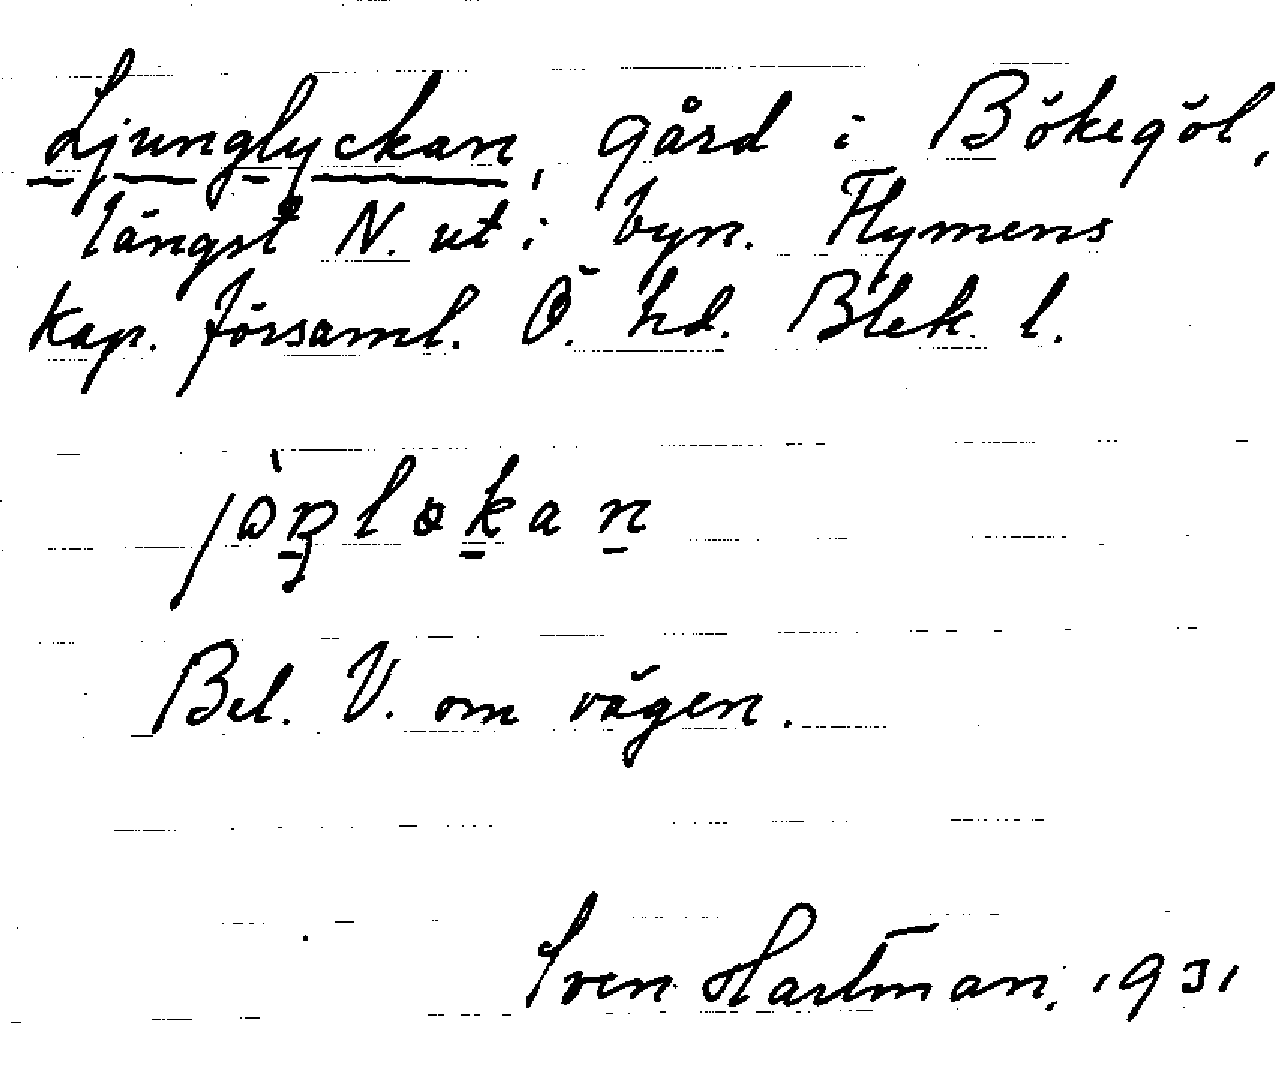 Ljunglyckan, gård i Bökegöl,
längst N. ut i byn. Flymens
kap. församl. Ö. hd. Blek. l.
jöŋlokan
Bel. V. om vägen.
Sven Hartman, 1931